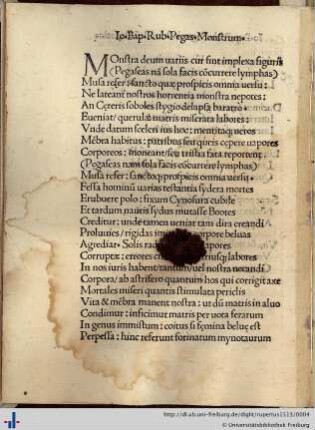 Io·Pap·Rub·Pegas·Monstrum·
MOnstra deum uariis cur sint implexa figuris
(Pegaseas nã sola facis cõcurrere lymphas)
Musa refer: sancto quæ prospicis omnia uersu:
Ne lateant nostros horrentia monstra nepotes:
An Cereris soboles stygio delapsa baratro
Eueniat: querulæ matris miserata labores:
Vnde datum sceleri ius hoc: mentita neruos
Mẽbra habitus: patribus seu queis cepere uapores
Corporeos: moneant seu tristia fata reportent
(Pegaseas nam sola facis cõcurrere lymphas)
Musa refer: sancto quæ prospicis omnia uersu:
Fessa hominũ uarias testantia sydera mortes
Erubuere polo: fixum Cynosura cubile
Et tardum mauris sydus mutasse Bootes
Creditur: unde tamen ueniat tam dira creandi
Proluuies: rigidas corpore beluas
Agrediar. Solis pores
Corruptæ: errores usq; labores
In nos iuris habent: uel nostra necandi
Corpora: ab astrisero quantum hos qui corrigit axe
Mortales miseri quantis stimulata periclis
Vita & mẽbra manent nostra: ut dũ matris in aluo
Condimur: inficimur matris per uota ferarum
In genus immistum: coitus si fœmina beluæ est
Perpessa: hinc referunt forinarum mynotaurum
http://dl.ub.uni-freiburg.de/diglit/rupertus1513/0004
© Universitätsbibliothek Freiburg